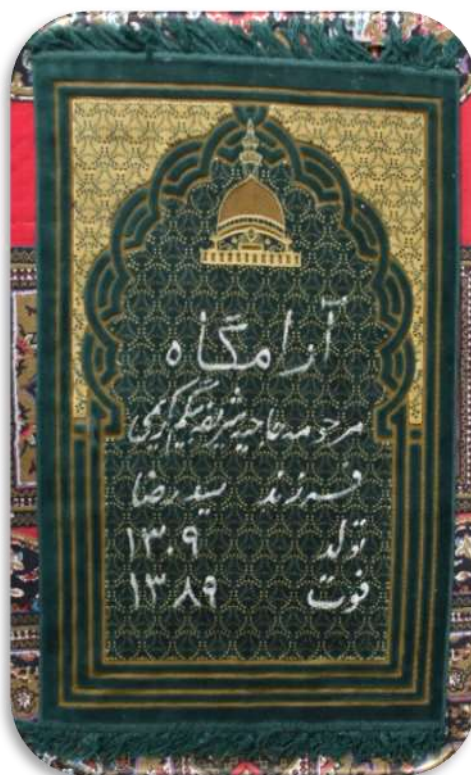 آرامگاه
مرحومه حاجیه شریفه بیگم کریمی
فرزند سید رضا
تولد ۱۳۰۹
فوت ۱۳۸۹